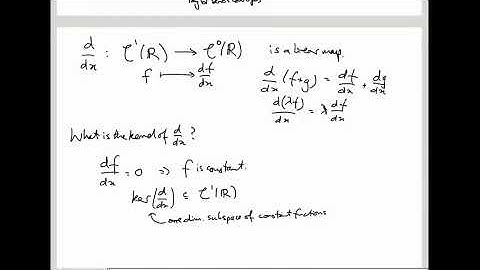 d/dx : C¹(R) ⟶ C⁰(R) is a linear map.
f ⟼ df/dx
d/dx (f+g) = df/dx + dg/dx
d(λf)/dx = λ df/dx
What is the kernel of d/dx ?
df/dx = 0 ⇒ f is constant.
ker(d/dx) ⊆ C¹(R)
one dim. subspace of constant functions